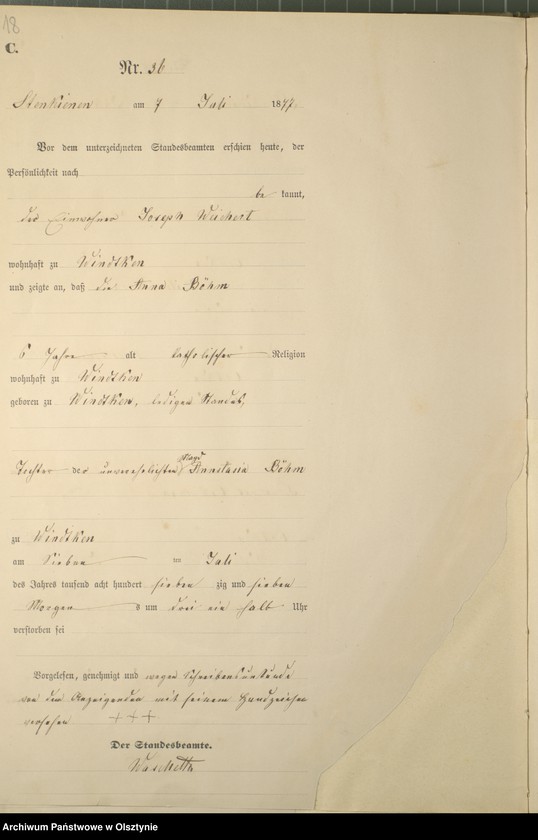 18
C.
Nr. 36
Stenkienen am 7 Juli 1877
Vor dem unterzeichneten Standesbeamten erschien heute, der
Persönlichkeit nach
be kannt,
der Einwohner Joseph Weichert
wohnhaft zu Windtken
und zeigte an, daß die Anna Böhm
6 Jahre alt katholischer Religion
wohnhaft zu Windtken
geboren zu Windtken, ledigen Standes,
Tochter der unverehelichten Magd Anastasia Böhm
zu Windtken
am Sieben ten Juli
des Jahres tausend acht hundert sieben zig und sieben
Morgen s um drei ein halb Uhr
verstorben sei
Vorgelesen, genehmigt und wegen Schreibensunkunde
von dem Anzeigenden mit seinem Handzeichen
versehen + + +
Der Standesbeamte.
Archiwum Państwowe w Olsztynie